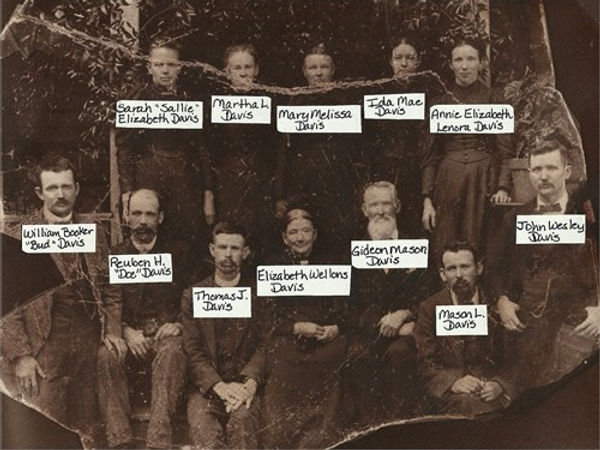 Sarah "Sallie"
Elizabeth Davis
Martha L.
Davis
Mary Melissa
Davis
Ida Mae
Davis
Annie Elizabeth
Lenora Davis
William Booker
"Bud" Davis
Reuben H.
"Doc" Davis
Thomas J.
Davis
Elizabeth Wellons
Davis
Gideon Mason
Davis
Mason L.
Davis
John Wesley
Davis